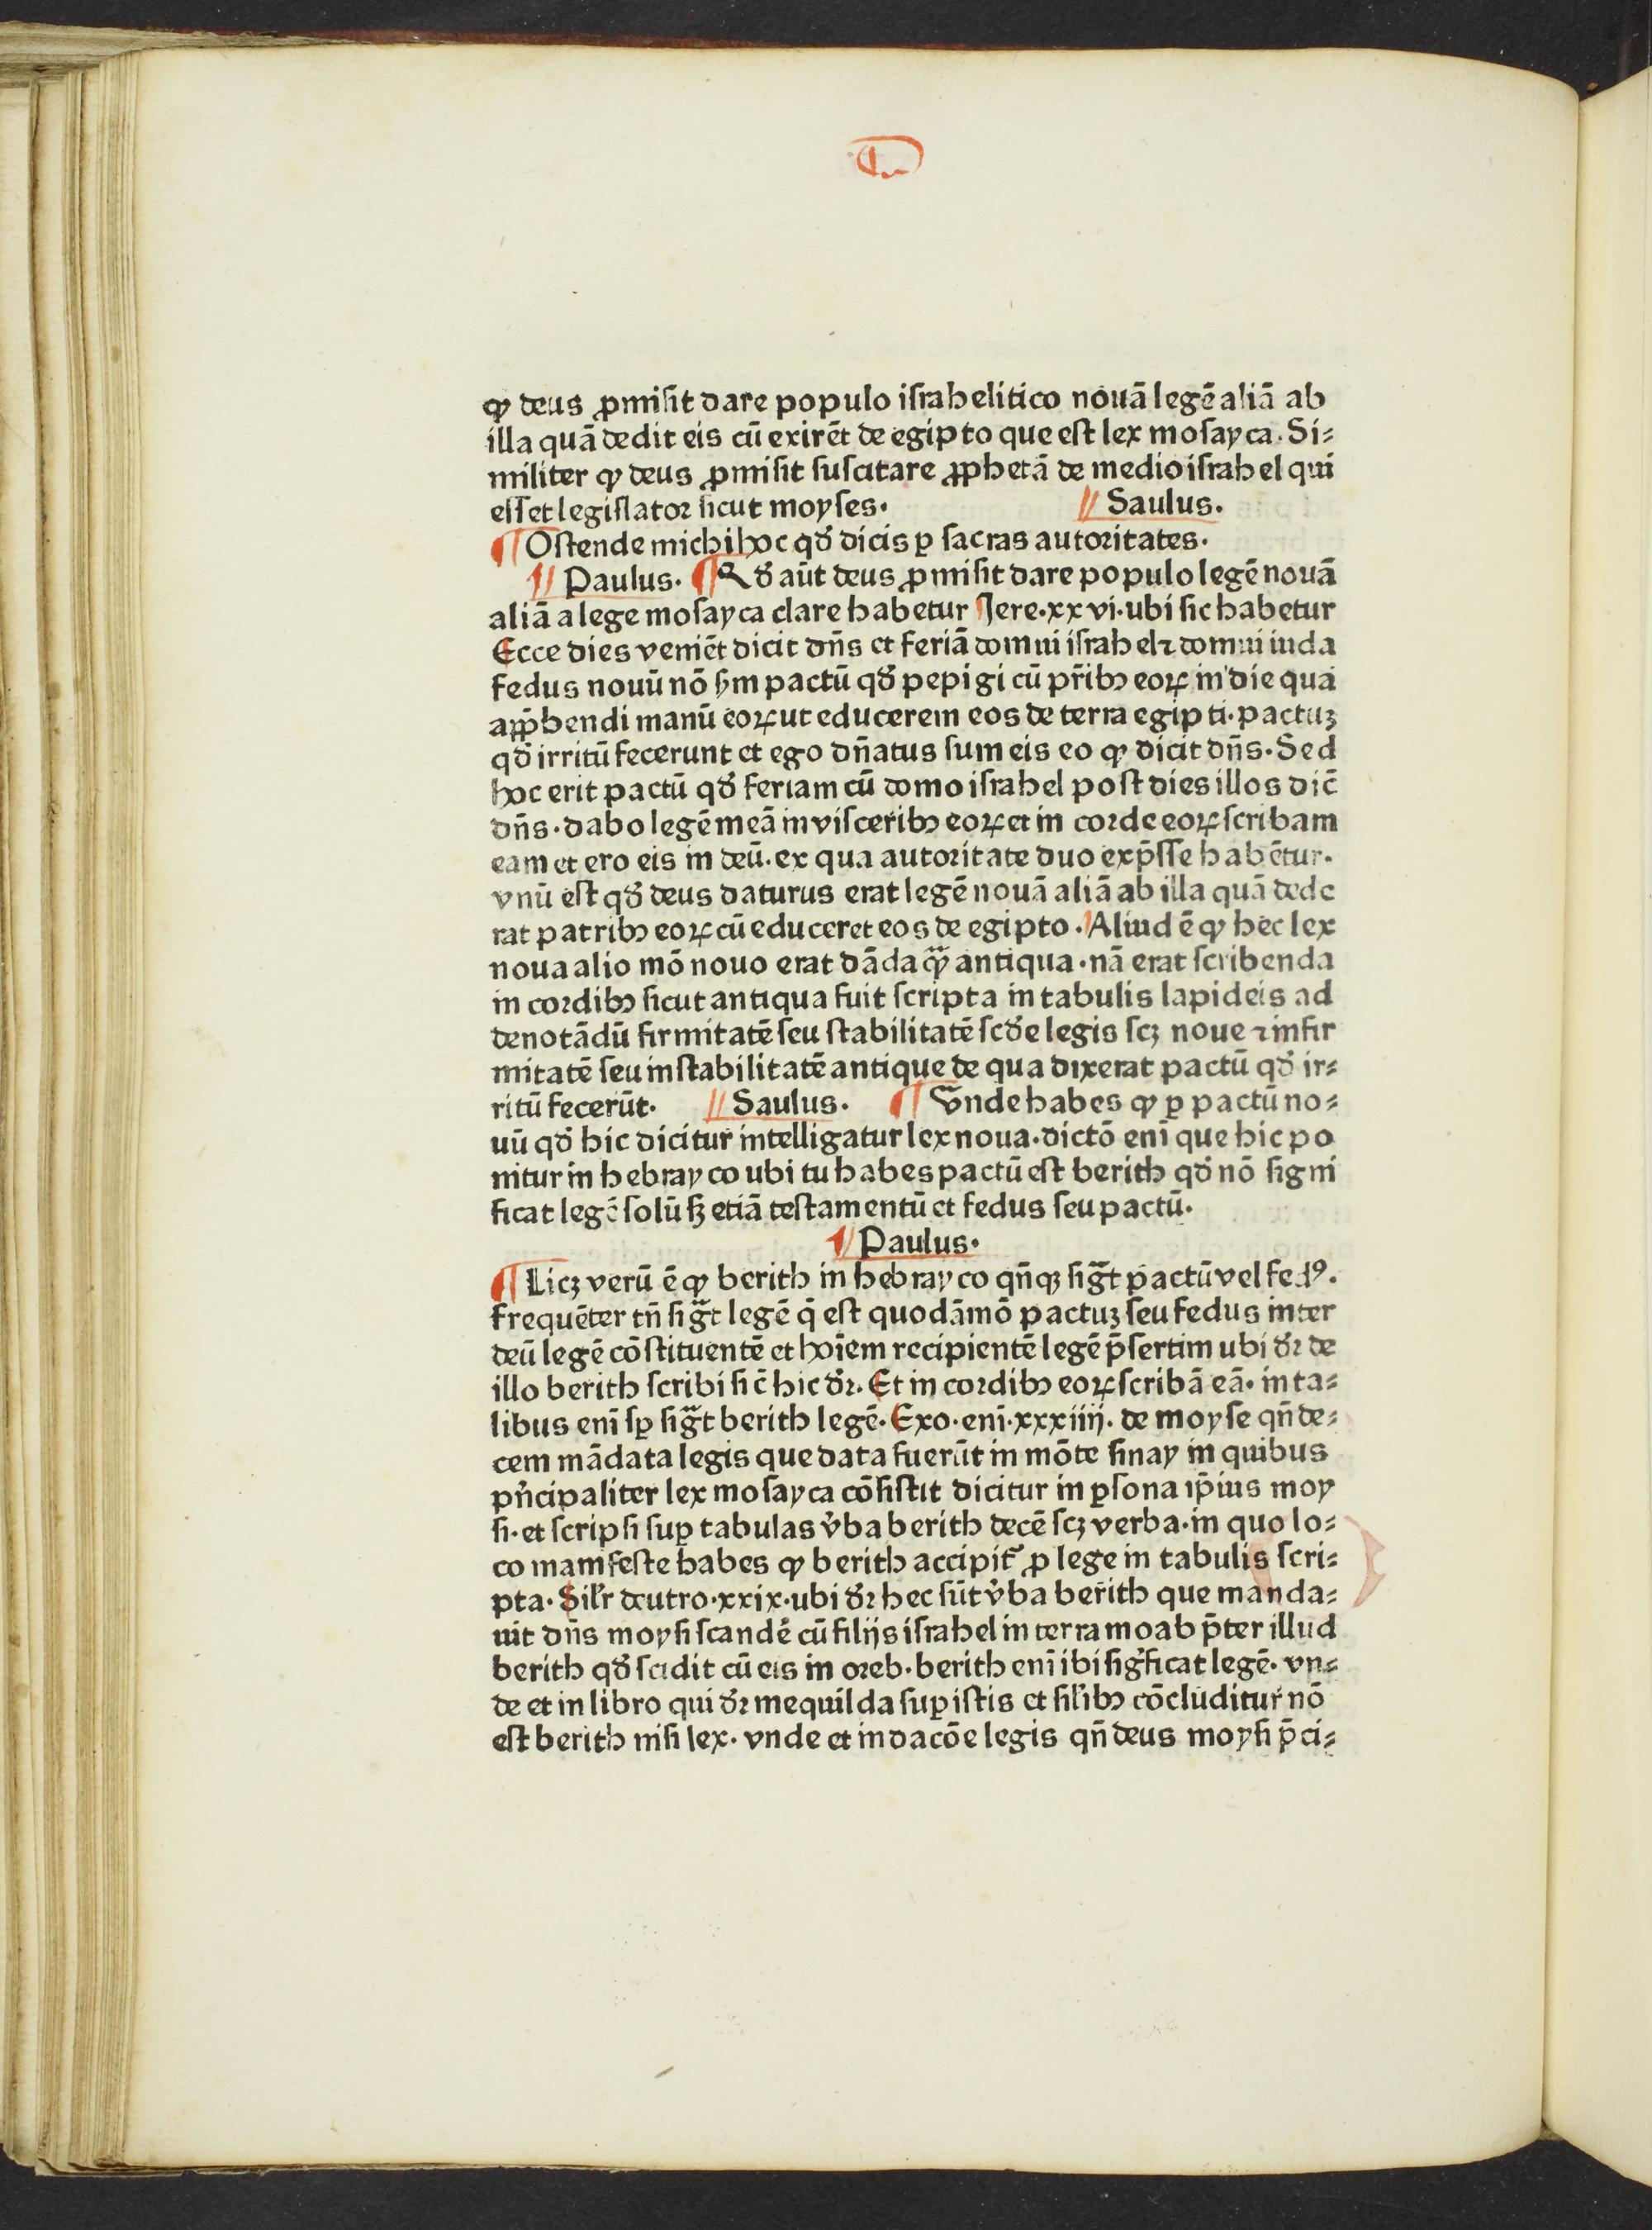 ꝙ deus ꝓmiſit dare populo iſrahelitico nouā legē aliā ab
illa quā dedit eis cū exirēt de egipto que eſt lex moſayca. Si⸗
militer ꝙ deus ꝓmiſit ſuſcitare ꝓphetā de medio iſrahel qui
eſſet legiſlator ſicut moyſes. Saulus.
¶ Oſtende michi hoc qđ dicis ꝑ ſacras autoritates.
¶ Paulus. ¶ Qđ aūt deus ꝓmiſit dare populo legē nouā
aliā a lege moſayca clare habetur Jere.xxvi.ubi ſic habetur
Ecce dies veniēt dicit dn̄s et feriā domui iſrahel ⁊ domui iuda
fedus nouū nō ẜm pactū qđ pepigi cū pr̄ibꝫ eoꝝ in die qua
app̄hendi manū eoꝝ ut educerem eos de terra egipti.pactuꝫ
qđ irritū fecerunt et ego dn̄atus ſum eis eo ꝙ dicit dn̄s. Sed
hoc erit pactū qđ feriam cū domo iſrahel poſt dies illos dic̄
dn̄s.dabo legē meā in viſceribꝫ eoꝝ et in corde eoꝝ ſcribam
eam et ero eis in deū.ex qua autoritate duo exp̄ſſe habētur.
vnū eſt qđ deus daturus erat legē nouā aliā ab illa quā dede
rat patribꝫ eoꝝ cū educeret eos de egipto. Aliud ē ꝙ hec lex
noua alio mō nouo erat dāda qͣꝫ antiqua.nā erat ſcribenda
in cordibꝫ ſicut antiqua fuit ſcripta in tabulis lapideis ad
denotādū firmitatē ſeu ſtabilitatē ſcđe legis ſcꝫ noue ⁊ infir
mitatē ſeu inſtabilitatē antique de qua dixerat pactū qđ ir⸗
ritū fecerūt. Saulus. ¶ Vnde habes ꝙ ꝑ pactū no⸗
uū qđ hic dicitur intelligatur lex noua.dictō eni que hic po
nitur in hebrayco ubi tu habes pactū eſt berith qđ nō ſigni
ficat legē ſolū ſꝫ etiā teſtamentū et fedus ſeu pactū.
¶ Paulus.
¶ Licꝫ verū ē ꝙ berith in hebrayco qn̄qꝫ ſigͣt pactū vel fedꝰ.
frequēter tn̄ ſigͣt legē q̄ eſt quodāmō pactuꝫ ſeu fedus inter
deū legē cōſtituentē et hoīem recipientē legē p̄ſertim ubi đꝛ de
illo berith ſcribi ſic̄ hic đꝛ. Et in cordibꝫ eoꝝ ſcribā eā. in ta⸗
libus enī ſꝑ ſigͣt berith legē. Exo.enī.xxxiiij. de moyſe qn̄ de⸗
cem mādata legis que data fuerūt in mōte ſinay in quibus
pn̄cipaliter lex moſayca cōſiſtit dicitur in ꝑſona ip̄ius moy
ſi.et ſcripſi ſuꝑ tabulas v̓ba berith decē ſcꝫ verba.in quo lo⸗
co manifeſte habes ꝙ berith accipit̓ ꝓ lege in tabulis ſcri⸗
pta. Sil̓r deutro.xxix.ubi đꝛ hec ſūt v̓ba berith que manda⸗
uit dn̄s moyſi ſcandē cū filijs iſrahel in terra moab p̄ter illud
berith qđ ſcidit cū eis in oreb.berith enī ibi ſig̓ficat legē. vn⸗
de et in libro qui đꝛ mequilda ſuꝑ iſtis et ſil̓ibꝫ cōcluditur nō
eſt berith niſi lex. vnde et in dacōe legis qn̄ deus moyſi p̄ci⸗